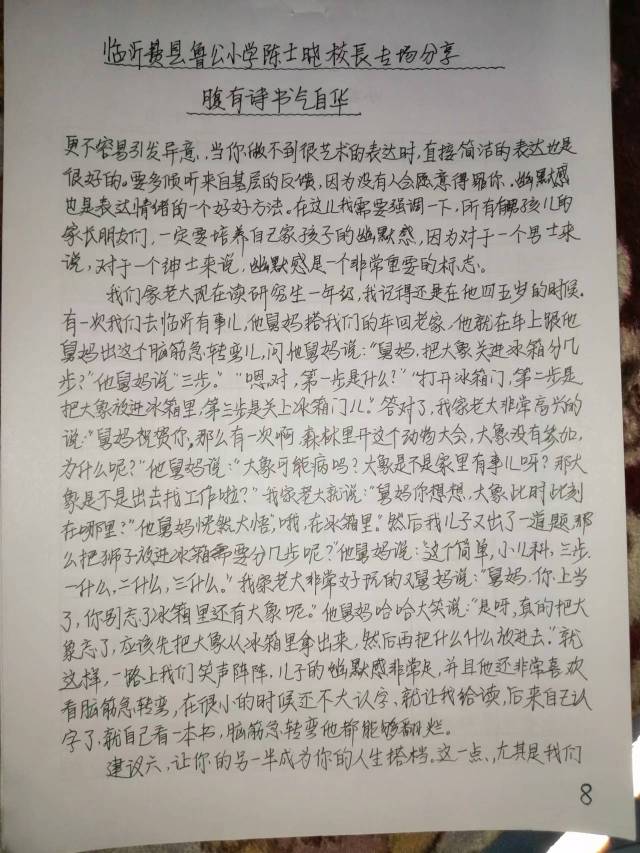 临沂费县鲁公小学陈士晓校長专场分享
腹有诗书气自华
更不容易引发异意,当你做不到很艺术的表达时,直接简洁的表达也是
很好的。要多倾听来自基层的反馈,因为没有人会愿意得罪你。幽默感
也是表达情绪的一个好好方法。在这儿我需要强调一下,所有有男孩儿的
家长朋友们,一定要培养自己家孩子的幽默感,因为对于一个男士来
说,对于一个绅士来说,幽默感是一个非常重要的标志。
我们家老大现在读研究生一年级,我记得还是在他四五岁的时候.
有一次我们去临沂有事儿,他舅妈搭我们的车回老家,他就在车上跟他
舅妈出这个脑筋急转弯儿,问他舅妈说:“舅妈,把大象关进冰箱分几
步?”他舅妈说“三步。”“嗯,对,第一步是什么?”“打开冰箱门,第二步是
把大象放进冰箱里,第三步是关上冰箱门儿。”答对了,我家老大非常高兴的
说:“舅妈祝贺你,那么有一次啊,森林里开这个动物大会,大象没有参加,
为什么呢?”他舅妈说:“大象可能病吗?大象是不是家里有事儿呀?那大
象是不是出去找工作啦?”我家老大就说:“舅妈你想想,大象此时此刻
在哪里?”他舅妈恍然大悟,“哦,在冰箱里。”然后我儿子又出了一道题,那
么把狮子放进冰箱需要分几步呢?”他舅妈说:“这个简单,小儿科,三步.
一什么,二什么,三什么。”我家老大非常好玩的又舅妈说:“舅妈,你上当
了,你别忘了冰箱里还有大象呢。”他舅妈哈哈大笑说:“是呀,真的把大
象忘了,应该先把大象从冰箱里拿出来,然后再把什么什么放进去。”就
这样,一路上我们笑声阵阵,儿子的幽默感非常足,并且他还非常喜欢
看脑筋急转弯,在很小的时候还不大认字,就让我给读,后来自己认
字了,就自己看一本书,脑筋急转弯他都能够翻烂。
建议六,让你的另一半成为你的人生搭档。这一点、尤其是我们
8